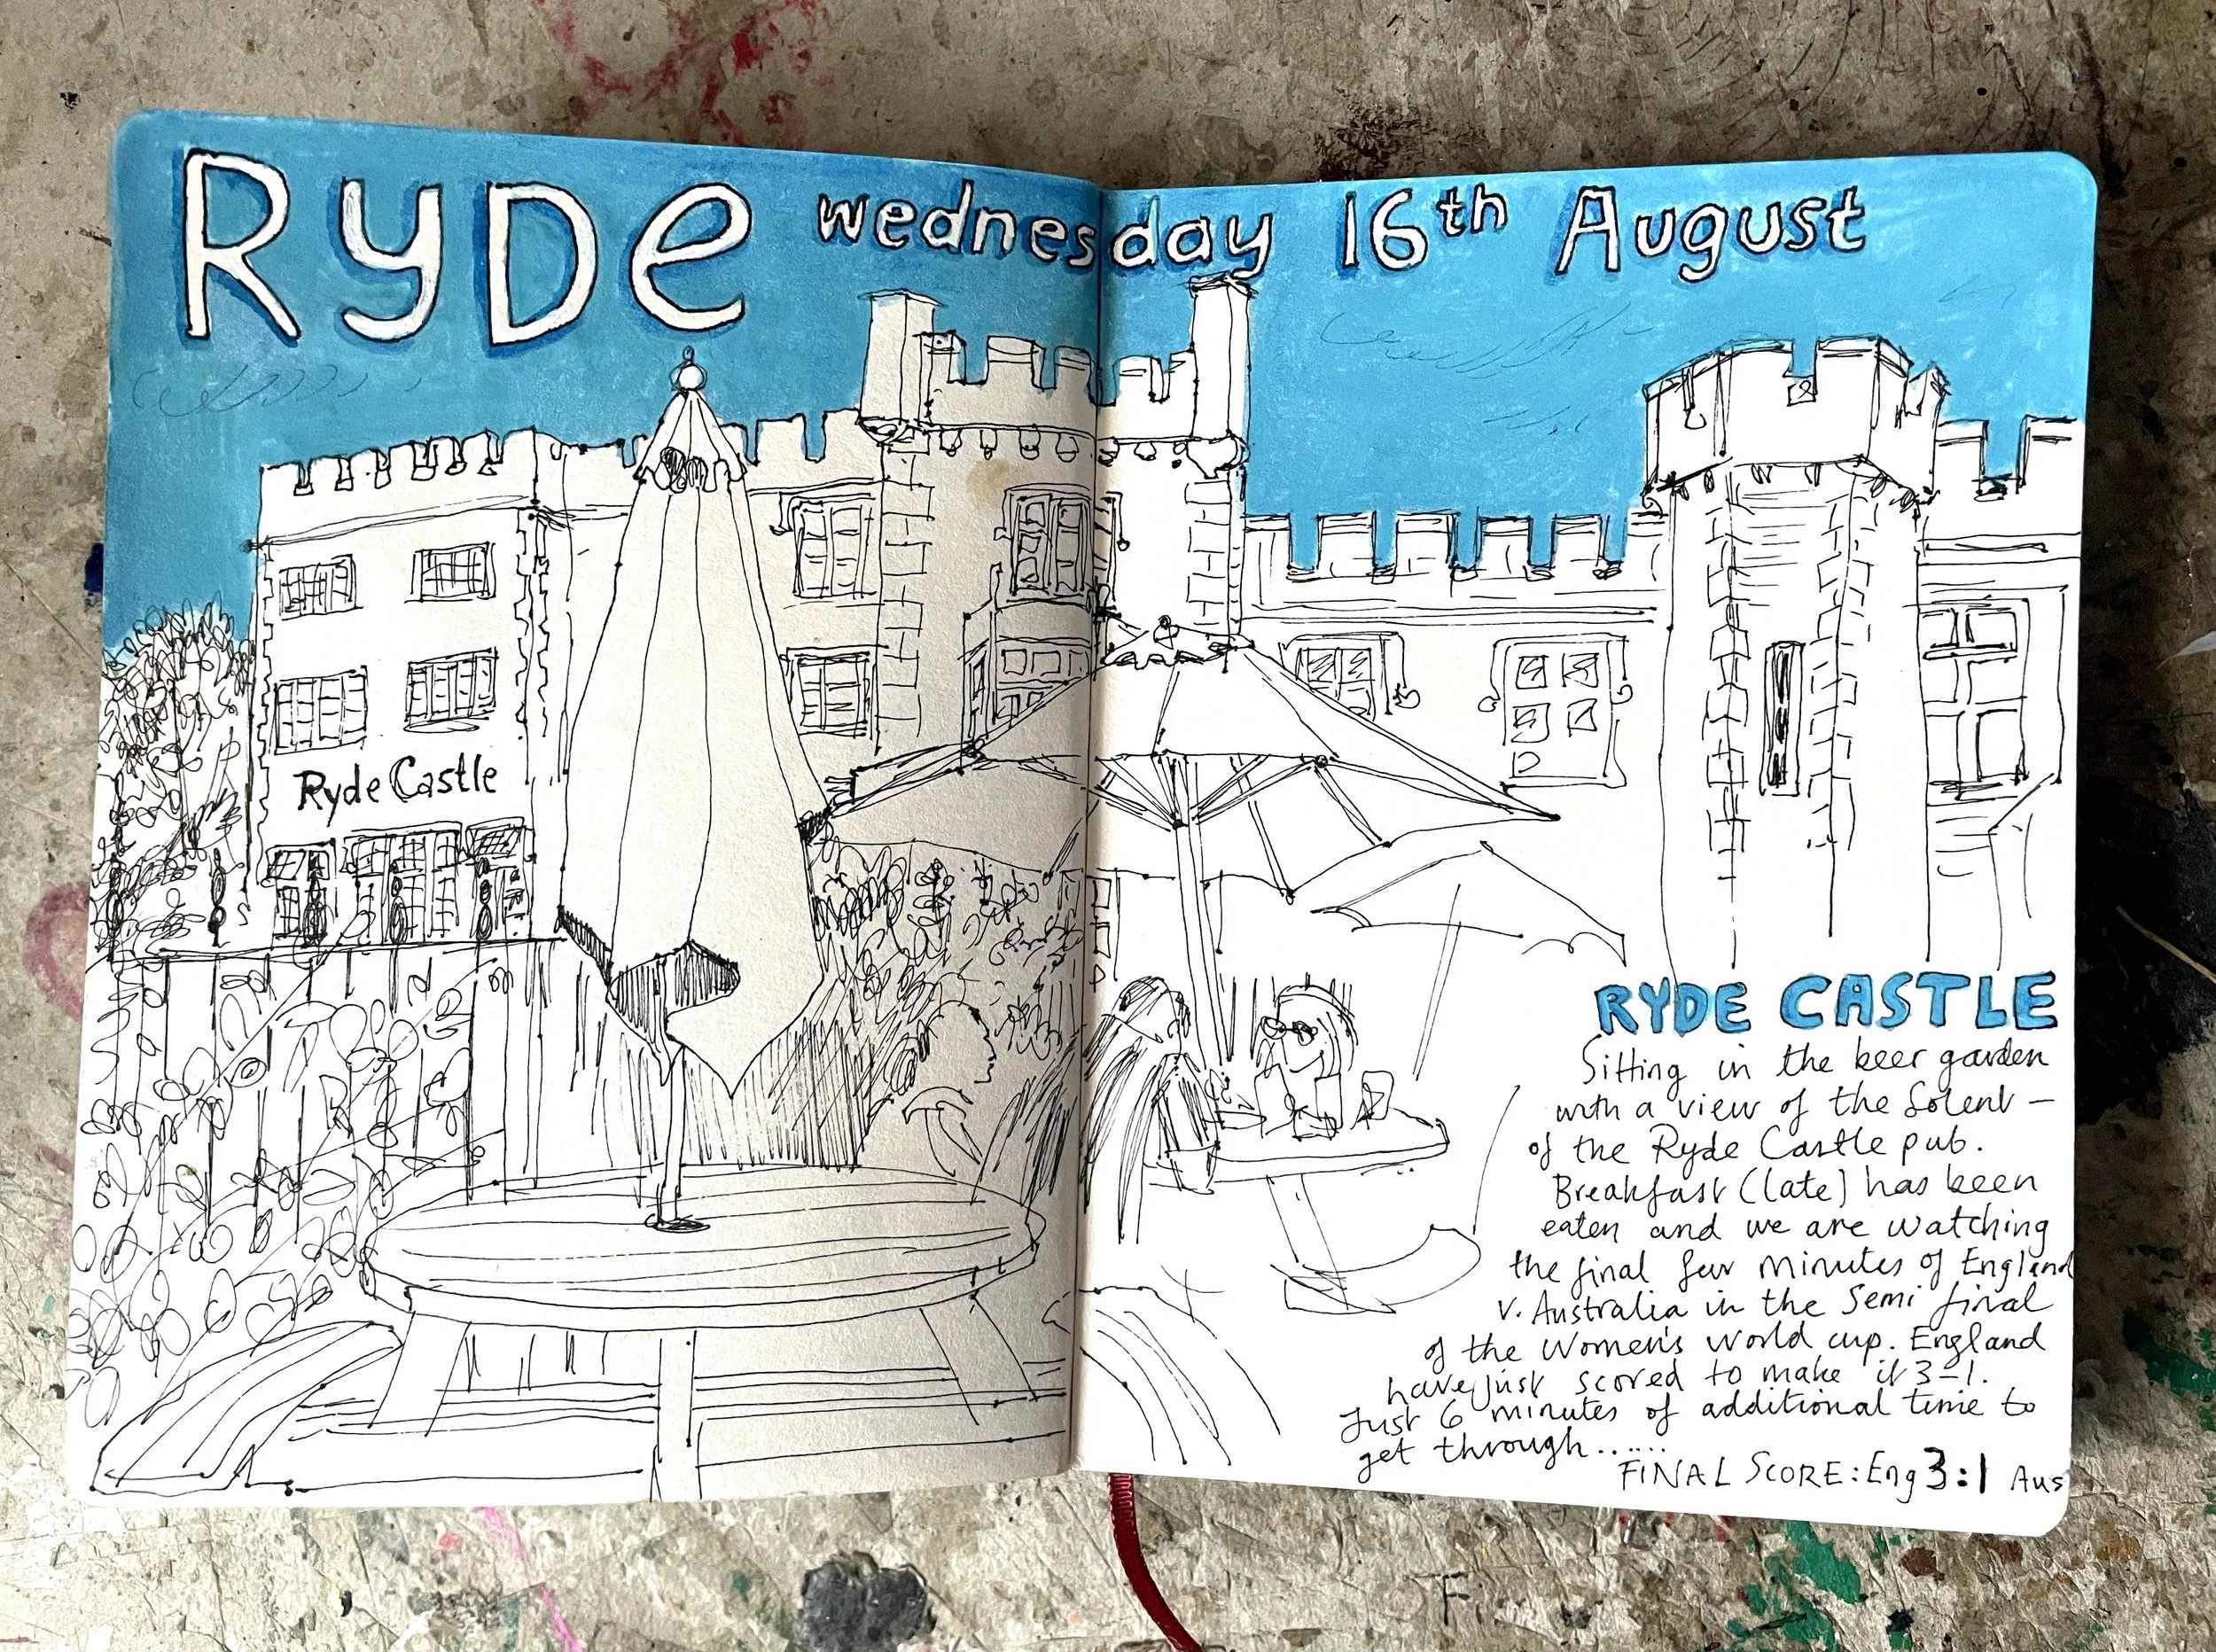 RyDe wednesday 16th August
Ryde Castle
RYDE CASTLE
Sitting in the beer garden
with a view of the Solent –
of the Ryde Castle pub.
Breakfast (late) has been
eaten and we are watching
the final few minutes of England
v. Australia in the Semi final
of the Women's world cup. England
have just scored to make it 3–1.
Just 6 minutes of additional time to
get through......
FINAL SCORE: Eng 3:1 Aus